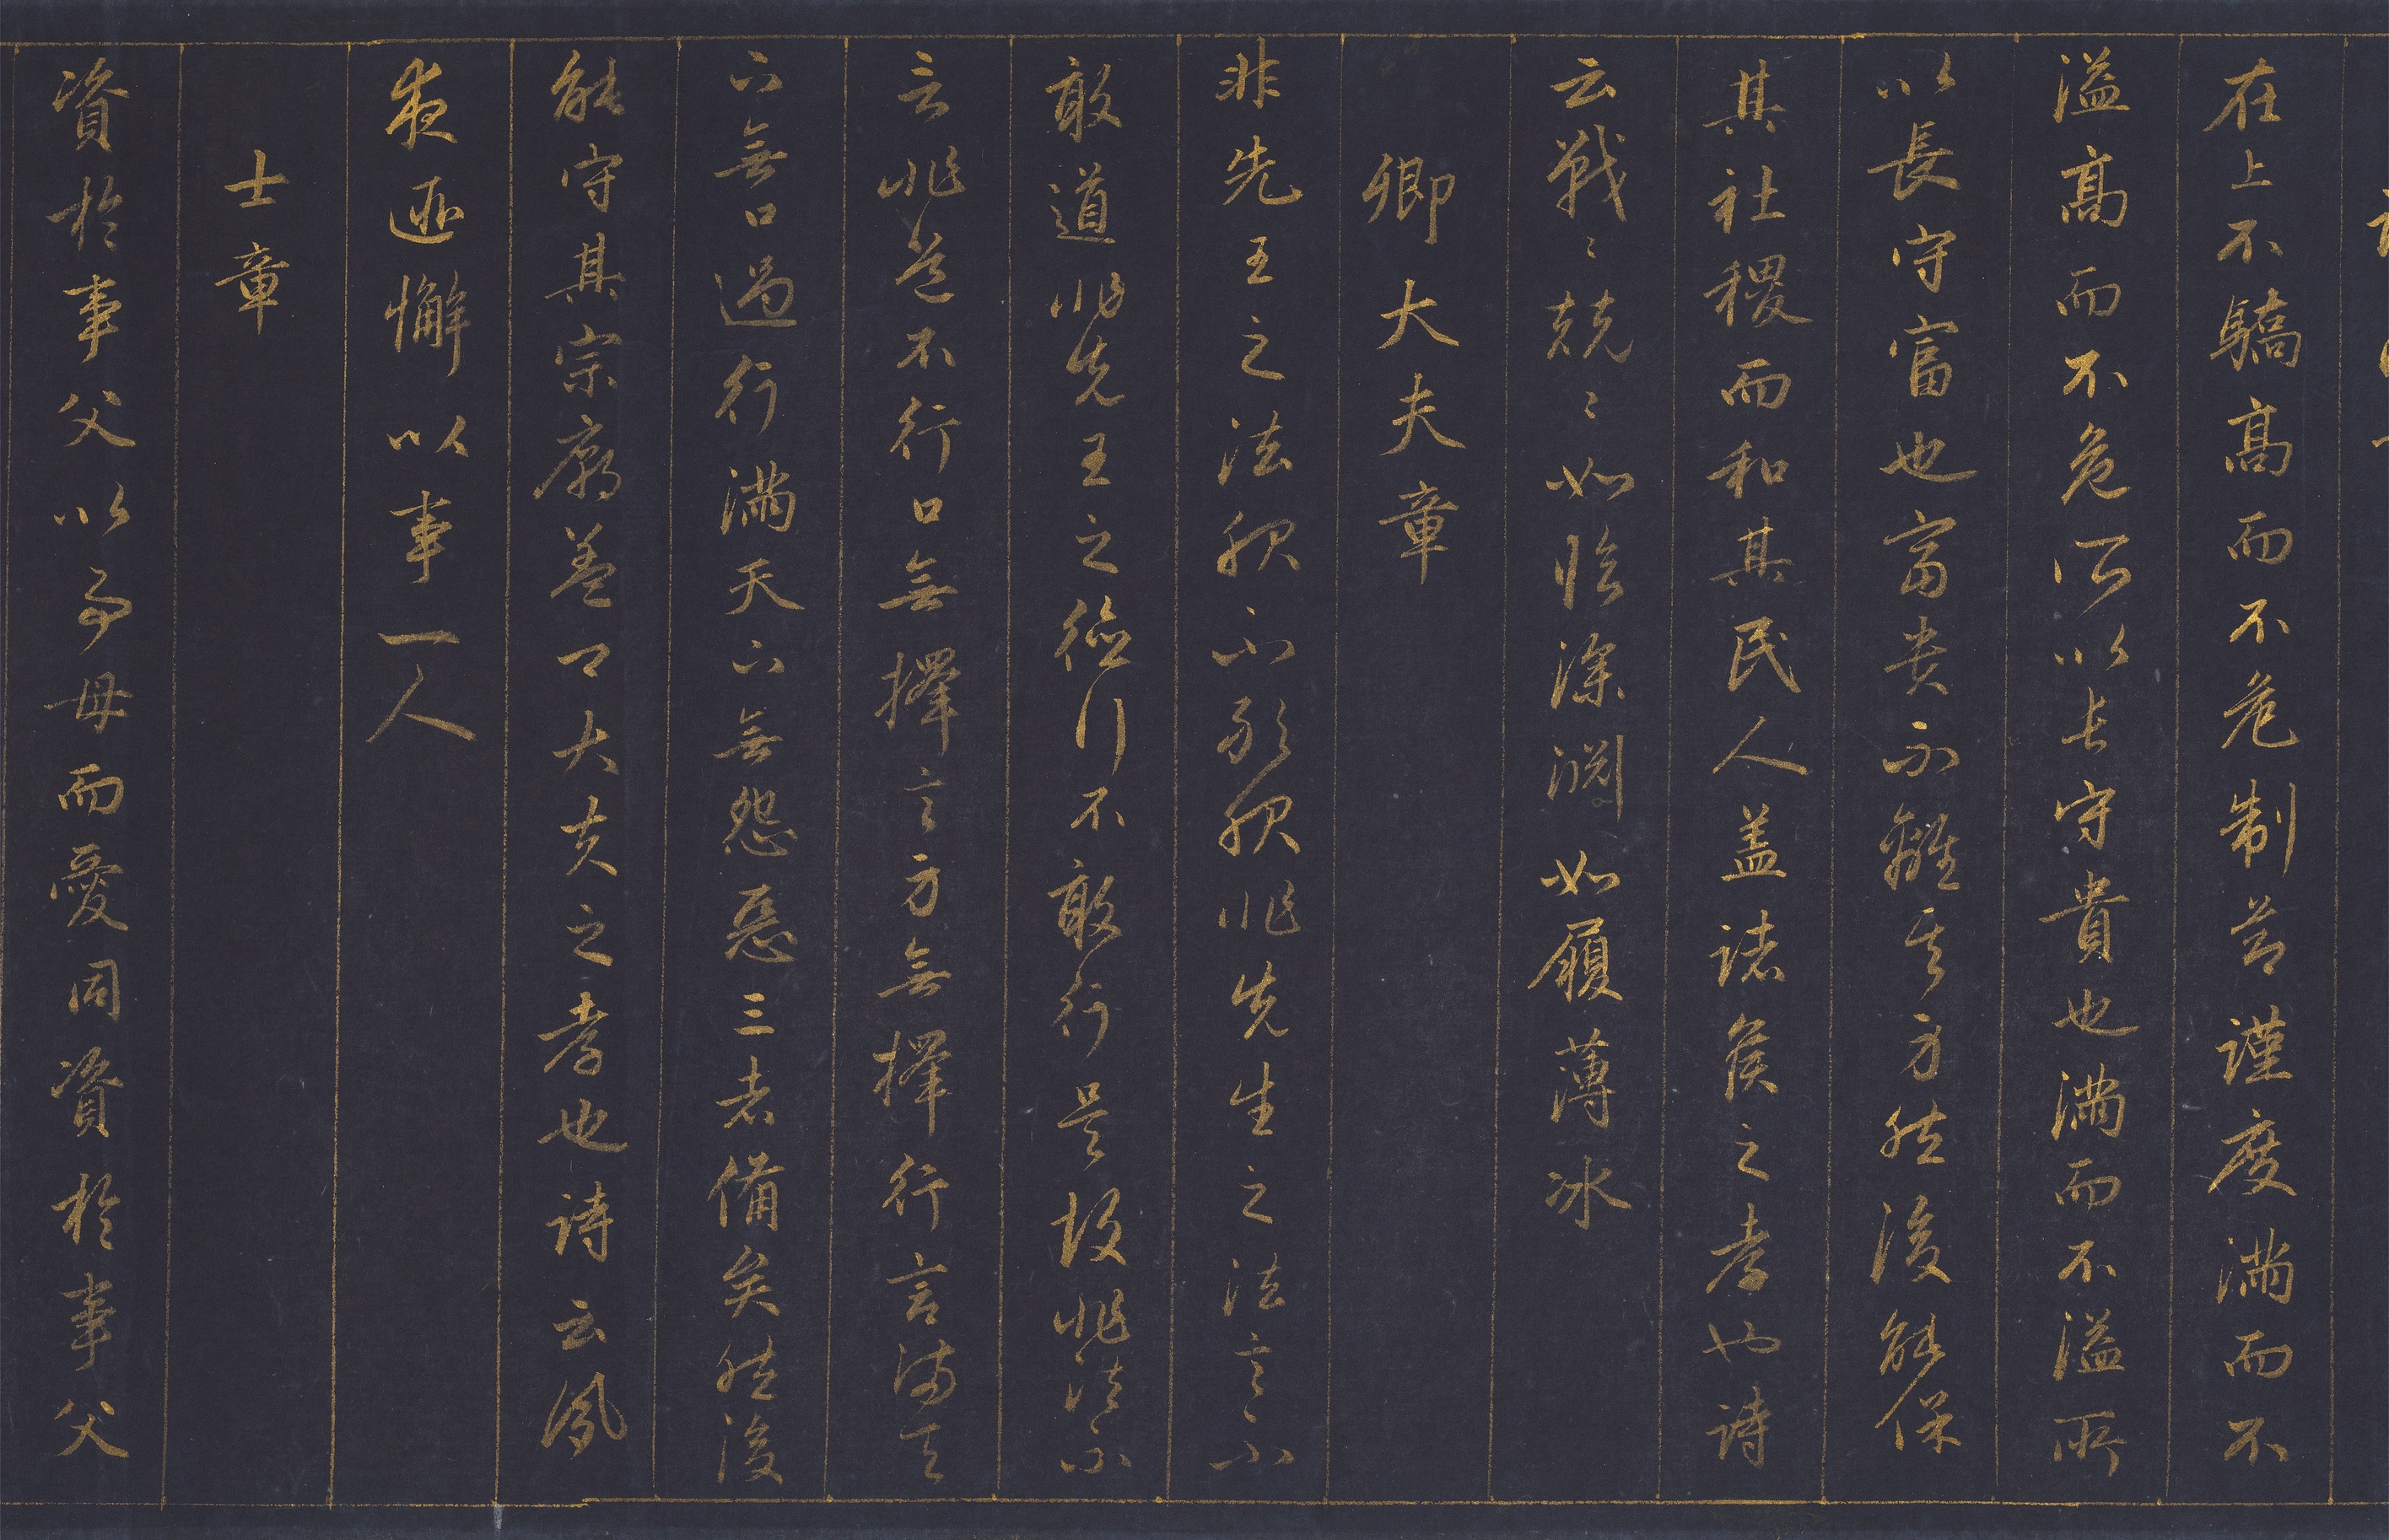 在上不驕高而不危制節謹度滿而不
溢高而不危所以長守貴也滿而不溢所
以長守富也富貴不離其身然後能保
其社稷而和其民人盖諸侯之孝也詩
云戰〻兢〻如臨深淵如履薄冰
卿大夫章
非先王之法服不敢服非先生之法言不
敢道非先王之德行不敢行是故非法不
言非道不行口無擇言身無擇行言滿天
下無口過行滿天下無怨惡三者備矣然後
能守其宗廟盖卿大夫之孝也詩云夙
夜匪懈以事一人
士章
資於事父以事母而愛同資於事父